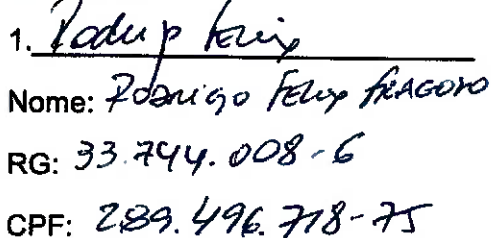 1. Rodrigo Felix
Nome: Rodrigo Felix FRAGOSO
RG: 33.744.008-6
CPF: 289.496.718-75